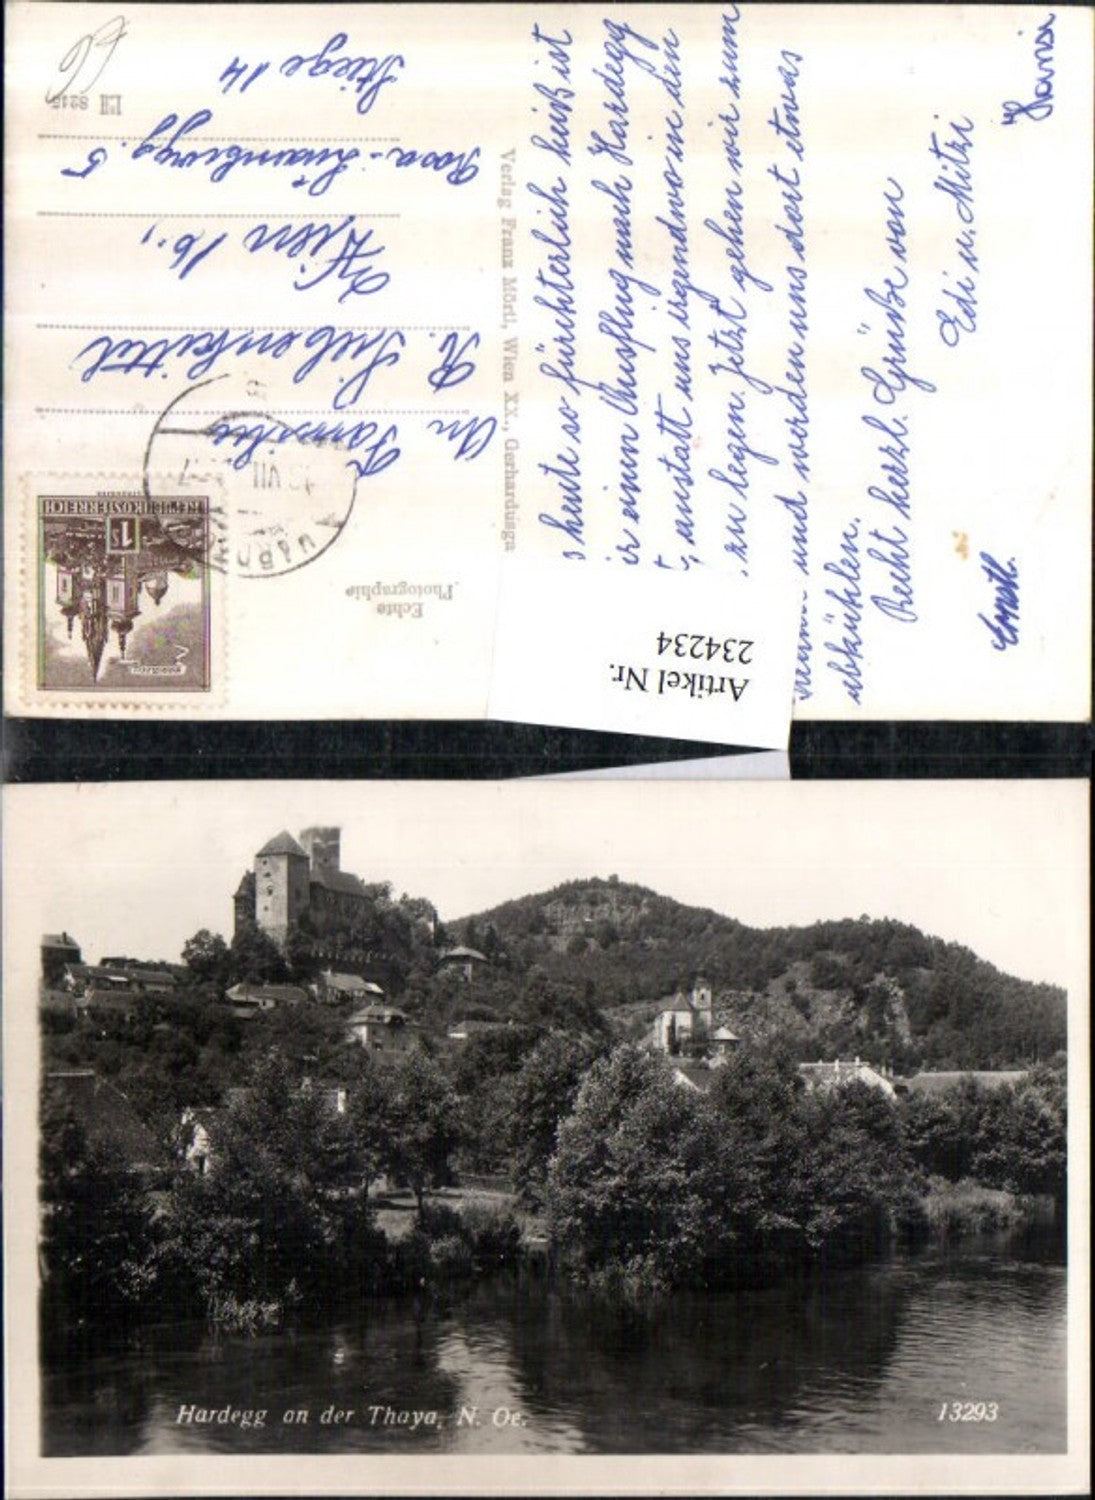 heute so fürchterlich heiß ist
ir einen Ausflug nach Hardegg
anstatt uns irgendwo in den
zu legen. Jetzt gehen wir zum
und werden uns dort etwas
abkühlen.
Recht herzl. Grüße von
Edi u. Mitzi
Hansi
Verlag Franz Mörtl, Wien XX., Gerhardusga
Echte
Photographie
REPUBLIK ÖSTERREICH
1 S
VII
An
Familie
R. Siebenkittel
Wien 16.,
Stiege 14
8215
Artikel Nr.
234234
Hardegg an der Thaya, N. Oe.
13293